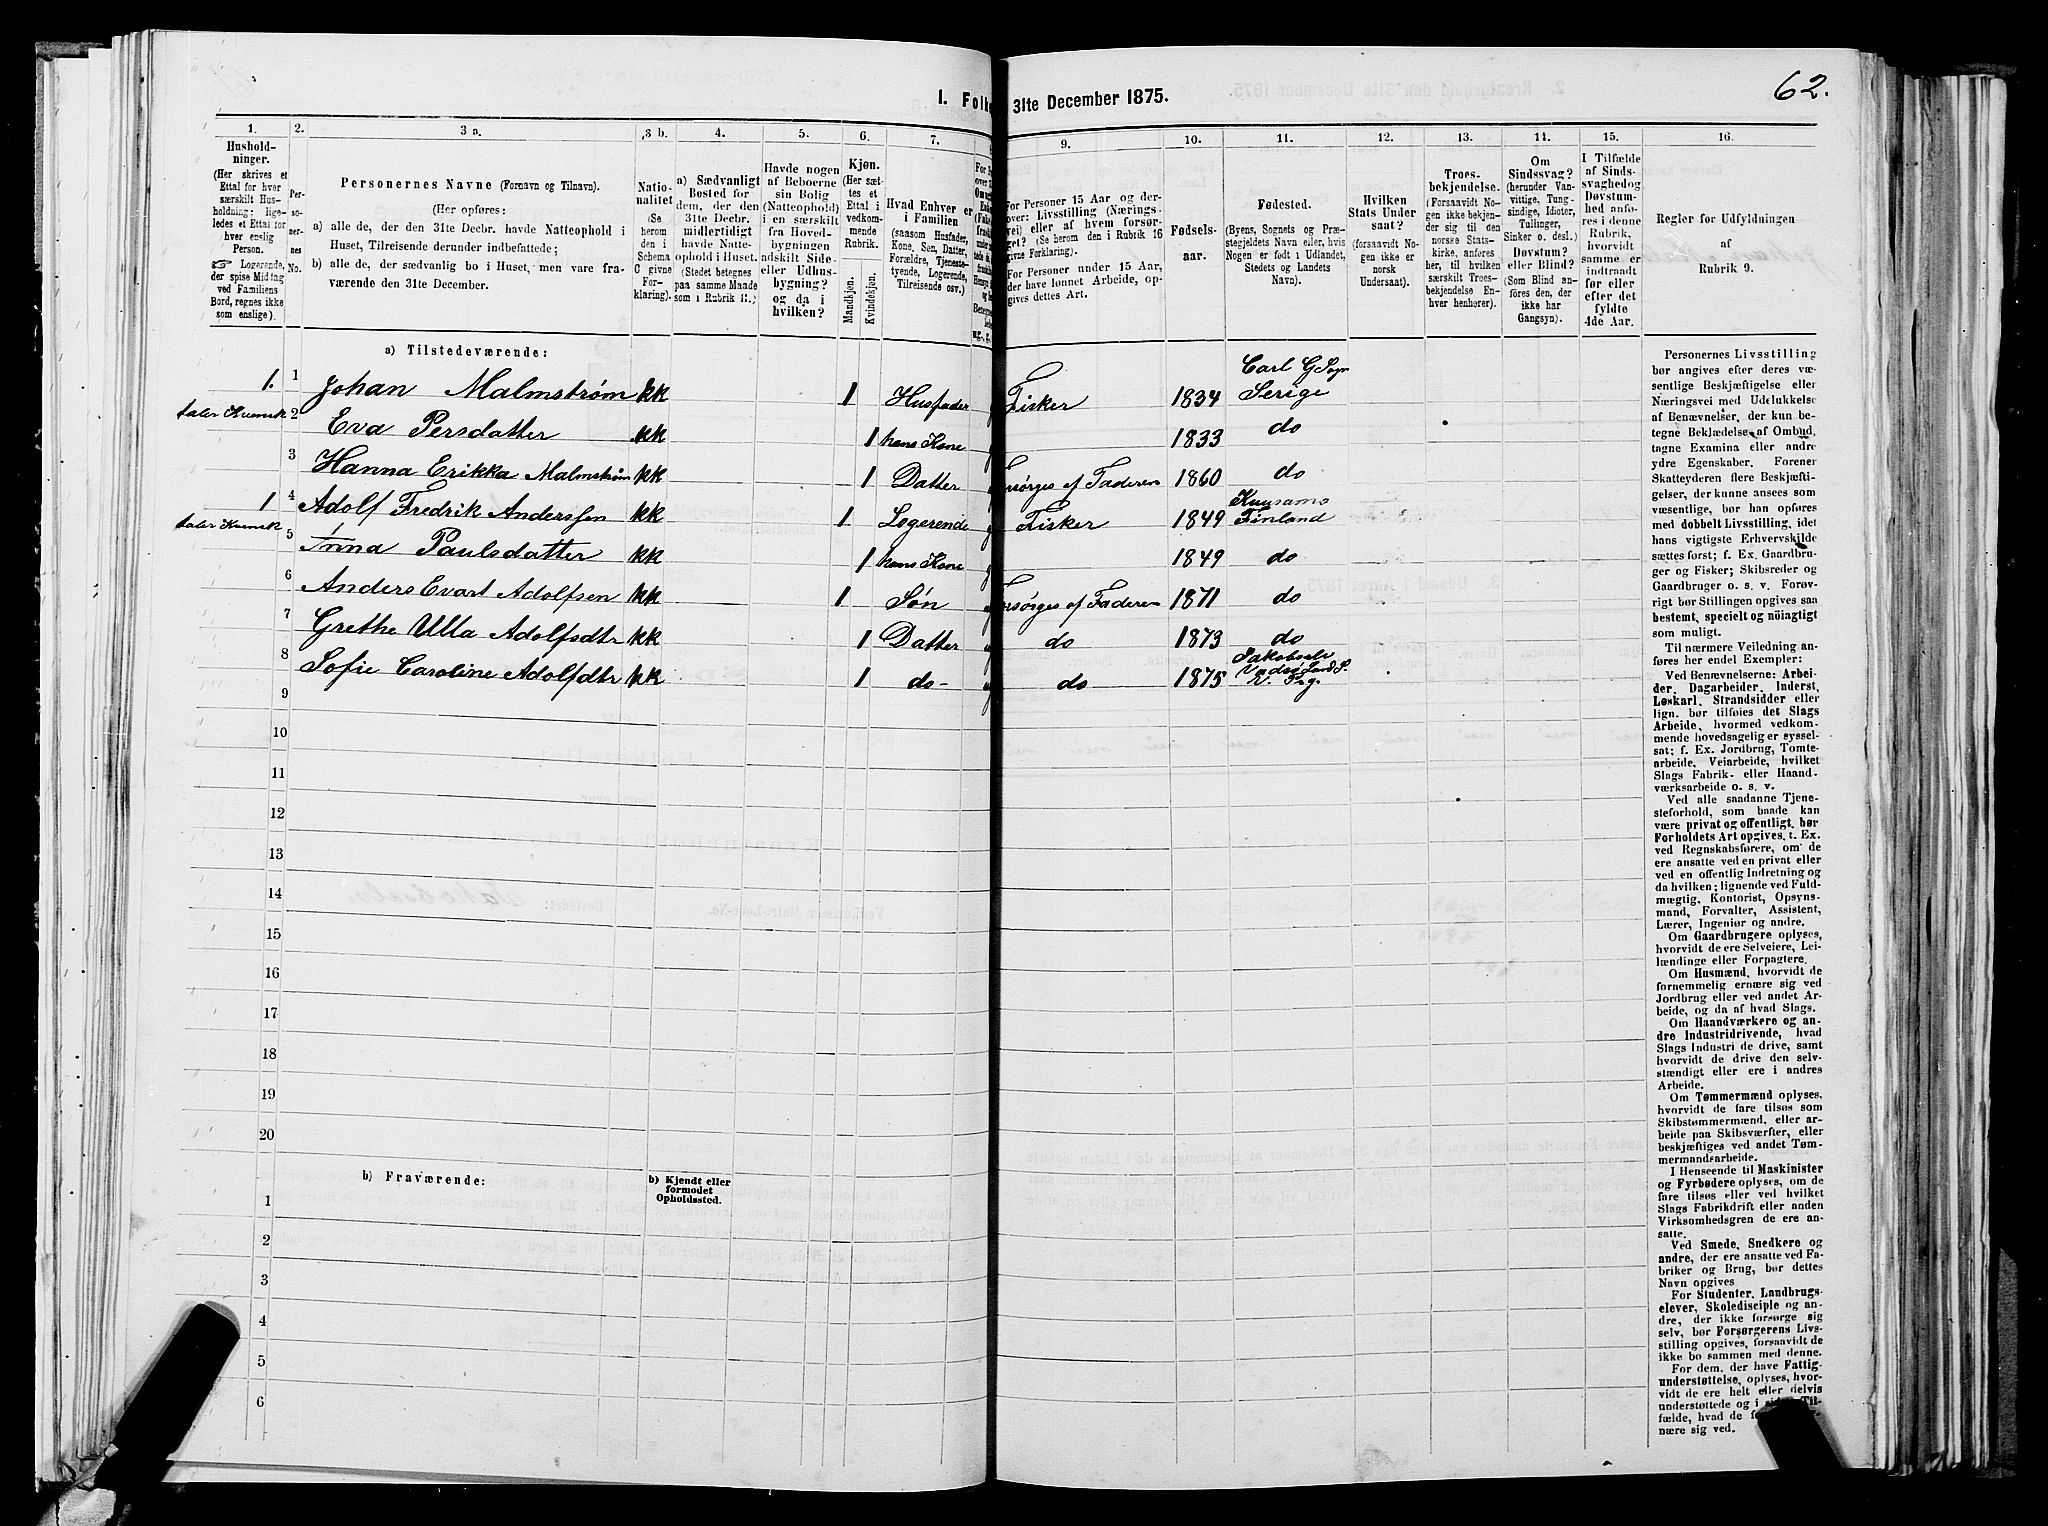 62.
1. Folke 31te December 1875.
1. 2. 3 a. 3 b. 4. 5. 6. 7. 9. 10. 11. 12. 13. 14. 15. 16.
Hushold-
ninger.
(Her skrives et
Ettal for hver
særskilt Hus-
holdning; lige-
ledes et Ettal for
hver enslig
Person.
☞ Logerende,
der spise Middag
ved Familiens
Bord, regnes ikke
som enslige).
Per-
so-
ner-
nes
No.
Personernes Navne (Fornavn og Tilnavn).
(Her opføres:
a) alle de, der den 31te Decbr. havde Natteophold i
Huset, Tilreisende derunder indbefattede;
b) alle de, der sædvanlig bo i Huset, men vare fra-
værende den 31te December.)
Natio-
nalitet
(Se
herom
den i
Schema
C givne
For-
klaring).
a) Sædvanligt
Bosted for
dem, der den
31te Decbr.
midlertidigt
havde Natte-
ophold i Huset.
(Stedet betegnes
paa samme Maade
som i Rubrik 11.)
Havde nogen
af Beboerne
sin Bolig
(Natteophold)
i en særskilt
fra Hoved-
bygningen
adskilt Side-
eller Udhus-
bygning?
og da i
hvilken?
Kjøn.
(Her sæt-
tes et
Ettal i
vedkom-
mende
Rubrik.
Mandkjøn.
Kvindekjøn.
Hvad Enhver er
i Familien
(saasom Husfader,
Kone, Søn, Datter,
Forældre, Tjeneste-
tyende, Logerende,
Tilreisende osv.)
For Personer 15 Aar og der-
over: Livsstilling (Nærings-
vei) eller af hvem forsør-
get? (Se herom den i Rubrik 16
givne Forklaring).
For Personer under 15 Aar,
der have lønnet Arbeide, op-
gives dettes Art.
Fødsels-
aar.
Fødested.
(Byens, Sognets og Præ-
stegjeldets Navn eller, hvis
Nogen er født i Udlandet,
Stedets og Landets
Navn).
Hvilken
Stats Under
saat?
(forsaavidt No-
gen ikke er
norsk
Undersaat).
Troes-
bekjendelse.
(Forsaavidt No-
gen ikke bekjen-
der sig til den
norske Stats-
kirke, anføres
her, til hvilken
særskilt Troes-
bekjendelse En-
hver henhører).
Om
Sindssvag?
(herunder Van-
vittige, Tung-
sindige, Idioter,
Tullinger,
Sinker o. desl.)
Døvstum?
eller Blind?
(Som Blind an-
føres den, der
ikke har
Gangsyn).
I Tilfælde
af Sinds-
svaghed og
Døvstum-
hed anfø-
res i denne
Rubrik,
hvorvidt
samme er
indtraadt
før eller
efter det
fyldte
4de Aar.
Regler for Udfyldningen
af
Rubrik 9.
a) Tilstedeværende:
1. 1 Johan Malmstrøm kk 1 Husfader Fisker 1834 Carl G Sogn Serige
taler Kvensk 2 Eva Persdatter kk 1 hans Kone 1833 do
3 Hanna Erikka Malmstrøm kk 1 Datter Forsørges af Faderen 1860 do
1 4 Adolf Fredrik Anderssen kk 1 Logerende Fisker 1849 Kuusamo Finland
taler Kvensk 5 Anna Paulsdatter kk 1 hans Kone 1849 do
6 Anders Evart Adolfsen kk 1 Søn Forsørges af Faderen 1871 do
7 Grethe Ulla Adolfsdtr kk 1 Datter do 1873 do
8 Sofie Caroline Adolfdtr kk 1 do- do 1875 Jakobselv Vadsø Land S. V. Prg.
9
10
11
12
13
14
15
16
17
18
19
20
b) Fraværende:
b) Kjendt eller
formodet
Opholdssted.
1
2
3
4
5
6
Personernes Livsstilling
bør angives efter deres væ-
sentlige Beskjæftigelse eller
Næringsvei med Udelukkelse
af Benævnelser, der kun be-
tegne Beklædelse af Ombud,
tagne Examina eller andre
ydre Egenskaber. Forener
Skatteyderen flere Beskjæfti-
gelser, der kunne ansees som
væsentlige, bør han opføres
med dobbelt Livsstilling, idet
hans vigtigste Erhvervskilde
sættes først; f. Ex. Gaardbru-
ger og Fisker; Skibsreder og
Gaardbruger o. s. v. Forøv-
rigt bør Stillingen opgives saa
bestemt, specielt og nøiagtigt
som muligt.
Til nærmere Veiledning an-
føres her endel Exempler:
Ved Benævnelserne: Arbei-
der, Dagarbeider, Inderst,
Løskarl, Strandsidder eller
lign. bør tilføies det Slags
Arbeide, hvormed vedkom-
mende hovedsagelig er syssel-
sat; f. Ex. Jordbrug, Tomte-
arbeide, Veiarbeide, hvilket
Slags Fabrik- eller Haand-
værksarbeide o. s. v.
Ved alle saadanne Tjene-
steforhold, som baade kan
være privat og offentligt, bør
Forholdets Art opgives, t. Ex.
ved Regnskabsførere, om de
ere ansatte ved en privat eller
ved en offentlig Indretning og
da hvilken; lignende ved Fuld-
mægtig, Kontorist, Opsyns-
mand, Forvalter, Assistent,
Lærer, Ingeniør og andre.
Om Gaardbrugere oplyses,
hvorvidt de ere Selveiere, Lei-
lændinge eller Forpagtere.
Om Husmænd, hvorvidt de
fornemmelig ernære sig ved
Jordbrug eller ved andet Ar-
beide, og da af hvad Slags.
Om Haandværkere og an-
dre Industridrivende, hvad
Slags Industri de drive, samt
hvorvidt de drive den selv-
stændigt eller ere i andres
Arbeide.
Om Tømmermænd oplyses,
hvorvidt de fare tilsøs som
Skibstømmermænd, eller ar-
beide paa Skibsværfter, eller
beskjæftiges ved andet Tøm-
mermandsarbeide.
I Henseende til Maskinister
og Fyrbødere oplyses, om de
fare tilsøs eller ved hvilket
Slags Fabrikdrift eller anden
Virksomhedsgren de ere an-
satte.
Ved Smede, Snedkere og
andre, der ere ansatte ved Fa-
briker og Brug, bør dettes
Navn opgives
For Studenter, Landbrugs-
elever, Skoledisciple og an-
dre, der ikke forsørge sig
selv, bør Forsørgerens Livs-
stilling opgives, forsaavidt de
ikke bo sammen med denne.
For dem, der have Fattig-
understøttelse, oplyses, hvor-
vidt de ere helt eller delvis
understøttede og i Til-
fælde, hvad de
nære sig ved.